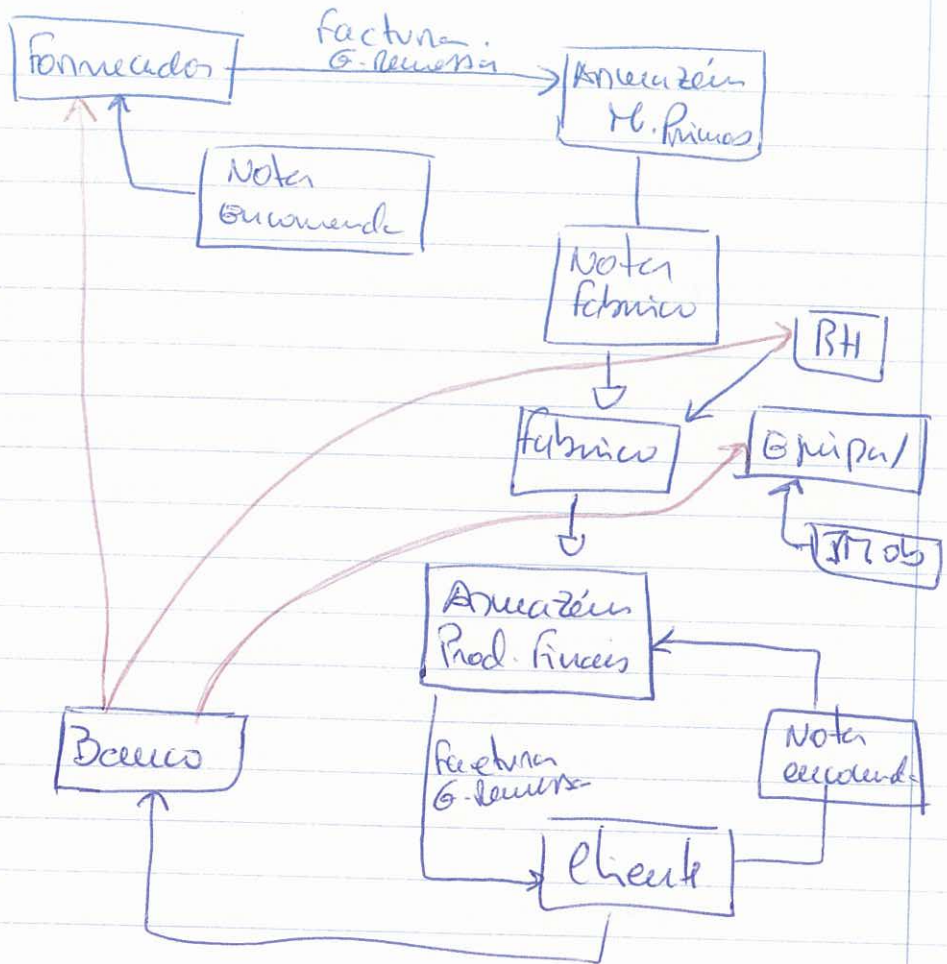 Fornecedor
Factura.
G. Remessa
Armazém
M. Primas
Nota
Encomenda
Nota
fabrico
RH
fabrico
Equipa/
IMob
Armazém
Prod. Finais
Banco
Factura
G. Remessa
Nota
encomenda
Cliente